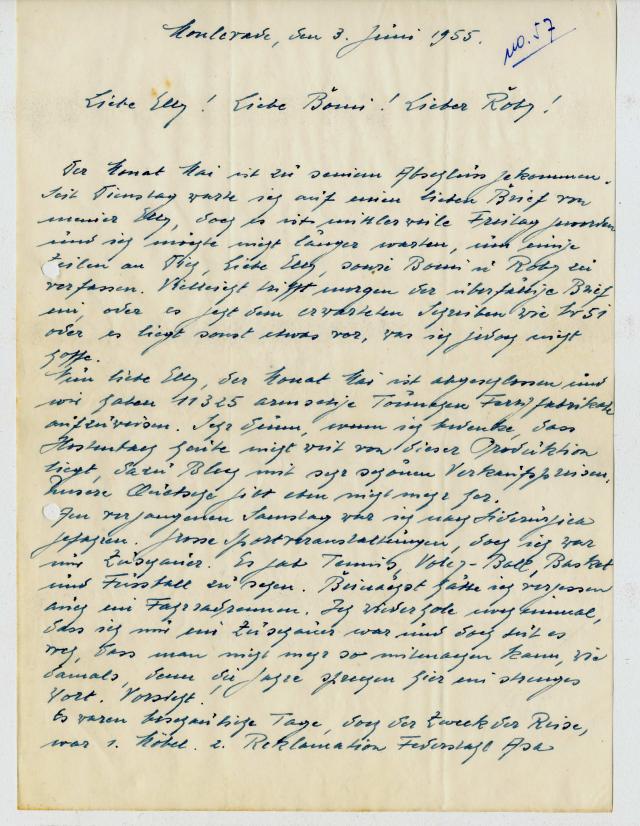 Monlevade, den 3. Juni 1955.
no. 57
Liebe Elly! Liebe Bömi! Lieber Röby!
Der Monat Mai ist zu seinem Abschluss gekommen.
Seit Dienstag warte ich auf einen lieben Brief von
meiner Elly, doch es ist mittlerweile Freitag geworden
und ich möchte nicht länger warten, um einige
Zeilen an Dich, liebe Elly, sowie Bomi u Roby zu
verfassen. Vielleicht trifft morgen der überfällige Brief
ein, oder es geht dem erwarteten Schreiben wie Nr 51
oder es liegt sonst etwas vor, was ich jedoch nicht
hoffe.
Nun liebe Elly, der Monat Mai ist abgeschlossen und
wir haben 11325 armselige Tonnagen Fertigfabrikate
aufzuweisen. Sehr dünn, wenn ich bedenke, dass
heute nicht weit von dieser Produktion
liegt, dazu Blech mit sehr schönen Verkaufspreisen.
Unsere Quetsche gibt eben nicht mehr her.
Am vergangenen Samstag war ich nach Siderúrgica
gefahren. Grosse Sportveranstaltungen, doch ich war
nur Zuschauer. Es gab Tennis, Voley-Ball, Basket
und Fussball zu sehen. Beinahest hätte ich vergessen
auch ein Fahrradrennen. Ich wiederhole noch einmal,
dass ich nur ein Zuschauer war und doch tut es
weh, dass man nicht mehr so mitmachen kann, wie
damals, denn die Jahre sprechen hier ein strenges
Wort. Vorsicht.
Es waren beschauliche Tage, doch der Zweck der Reise,
war 1. Möbel. 2. Reklamation Federstahl